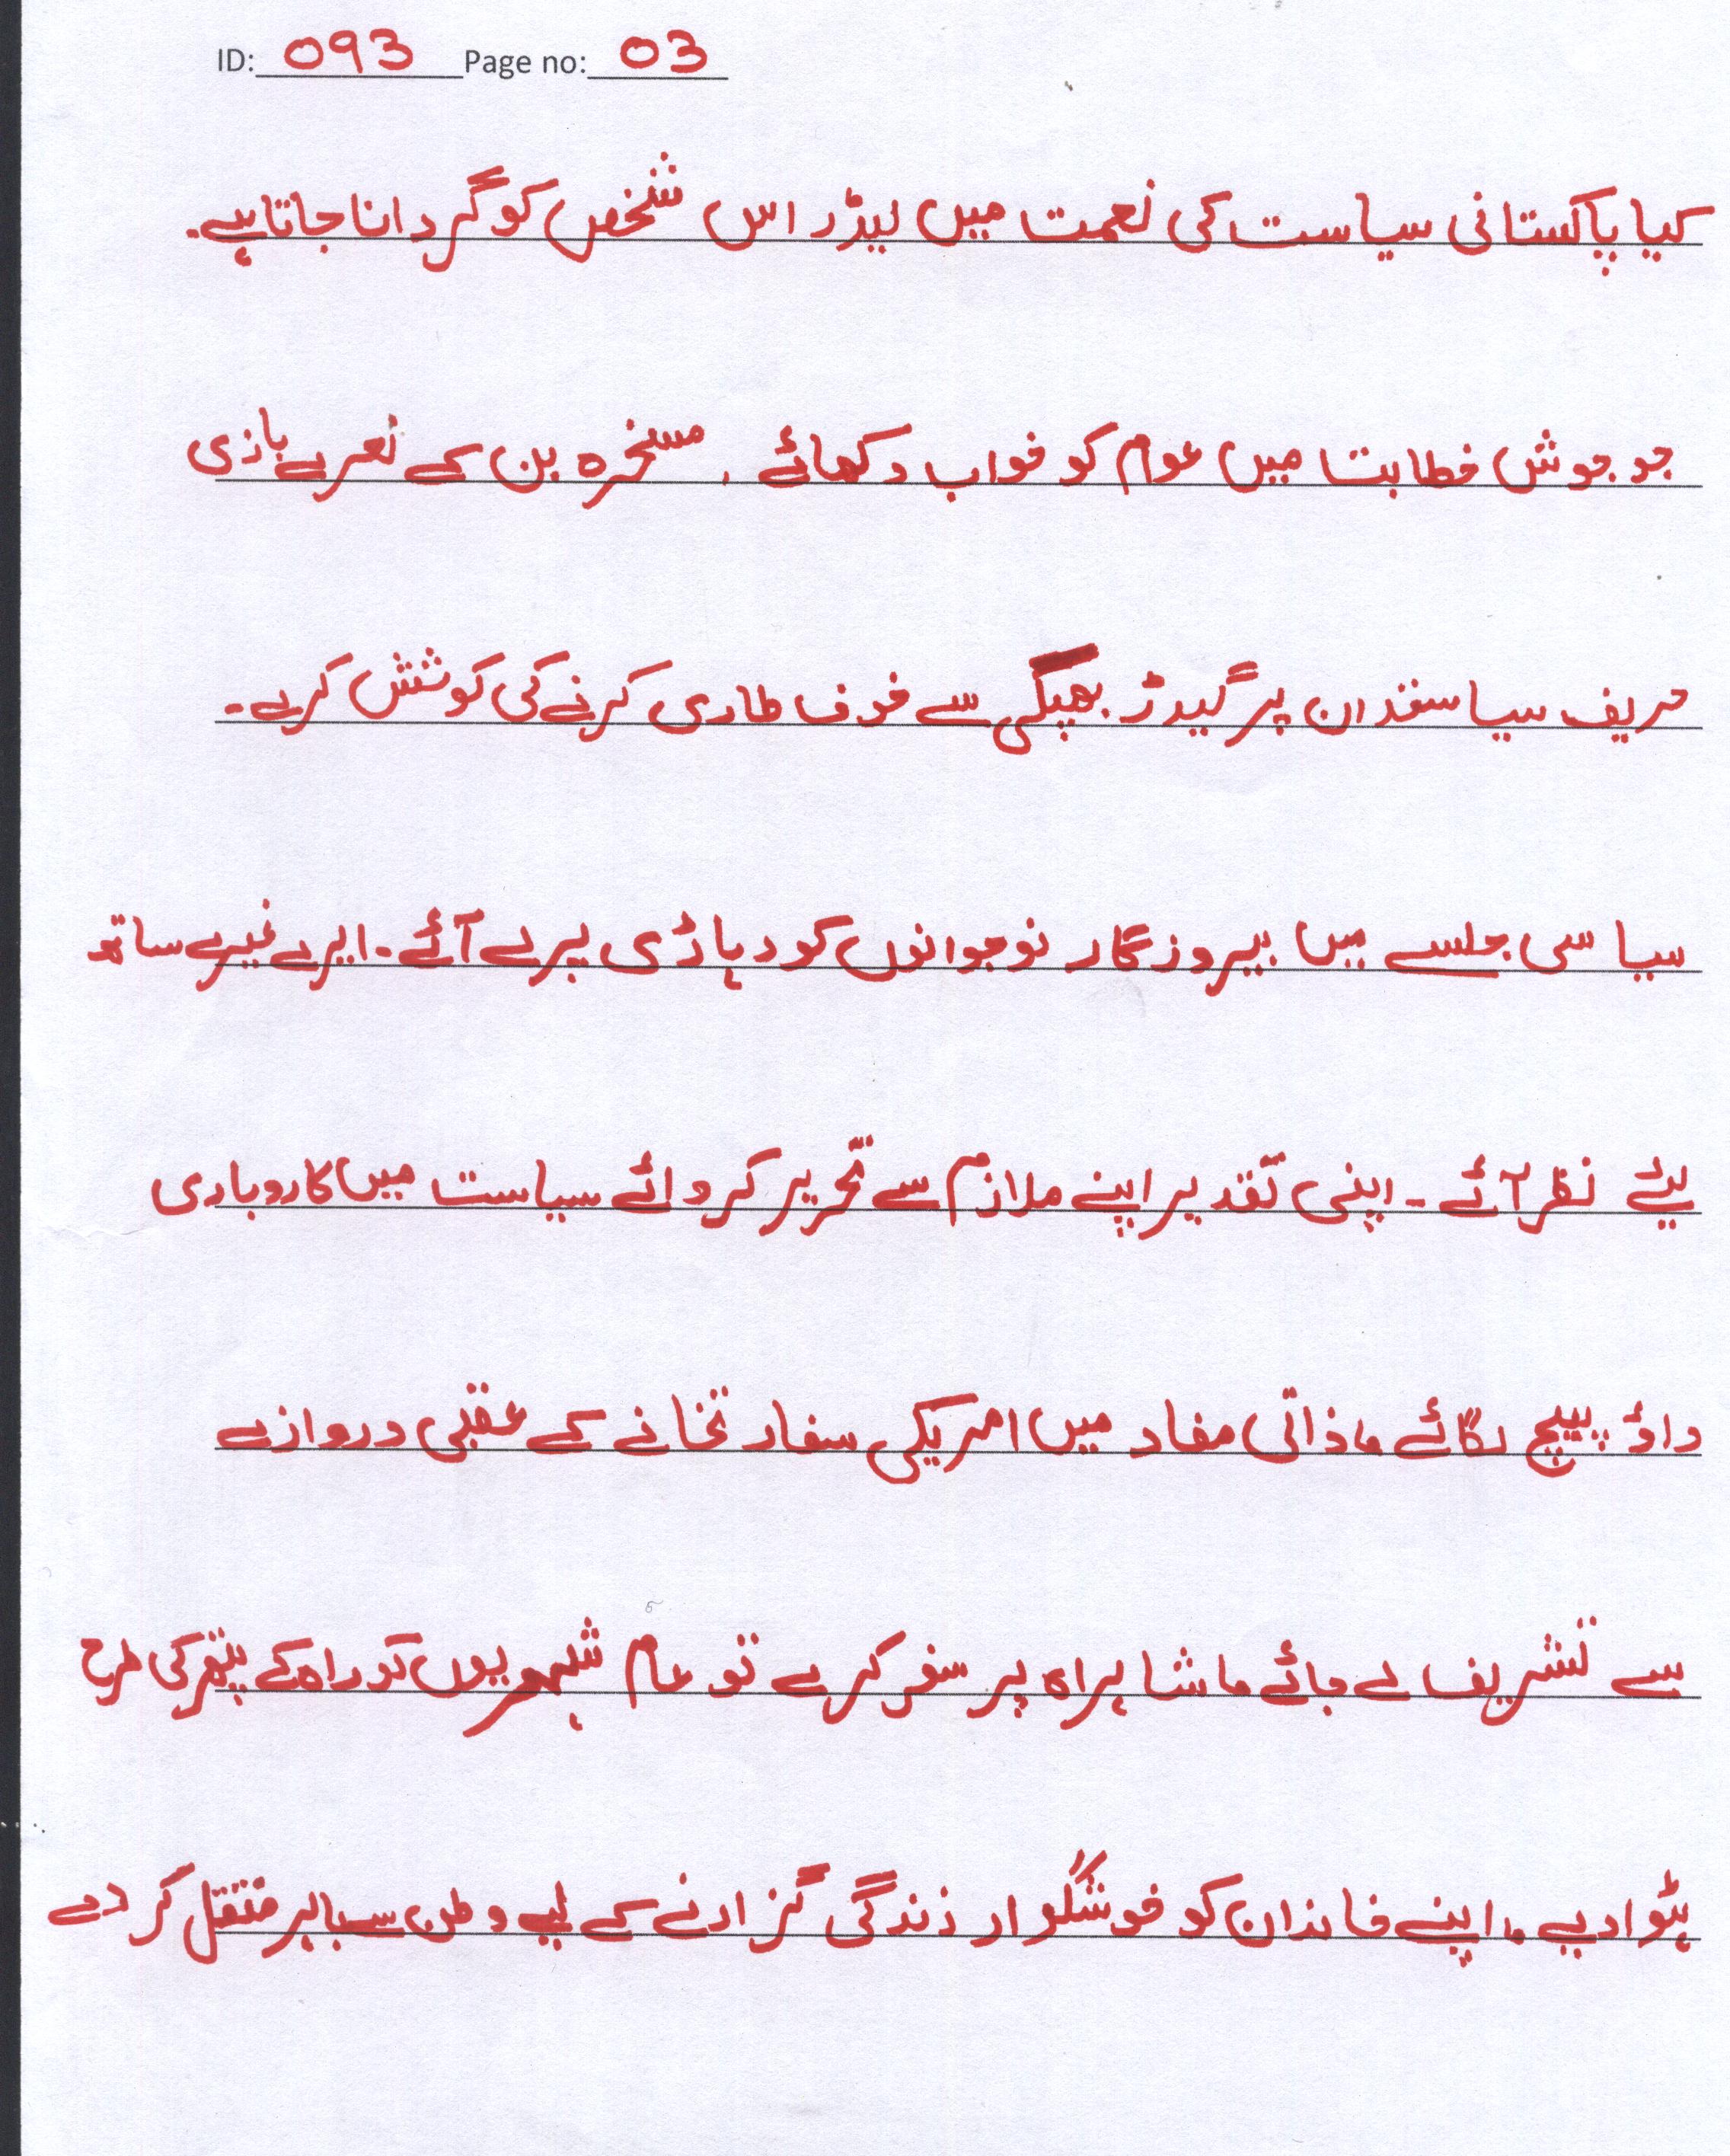 ID: 093 Page no: 03
کیا پاکستانی سیاست کی نعمت میں لیڈر اس شخص کو گردانا جاتا ہے۔
جو جوش خطابت میں عوام کو خواب دکھائے ، مسخرہ بن کے نعرے بازی
حریف سیاستدان پر گیدڑ بھبکی سے خوف طاری کرنے کی کوشش کرے۔
سیاسی جلسے میں بیروزگار نوجوانوں کو دہاڑی پر لے آئے۔ ایرے غیرے ساتھ
لیئے نظر آئے ۔ اپنی تقدیر اپنے ملازم سے تحریر کروائے سیاست میں کاروباری
داؤ پیچ لگائے ، ذاتی مفاد میں امریکی سفارتخانے کے عقبی دروازے
سے تشریف لے جائے ، شاہراہ پر سفر کرے تو عام شہریوں کو راہ کے پتھر کی طرح
ہٹوا دیے ، اپنے خاندان کو خوشگوار زندگی گزارنے کے لیے وطن سے باہر منتقل کر دے